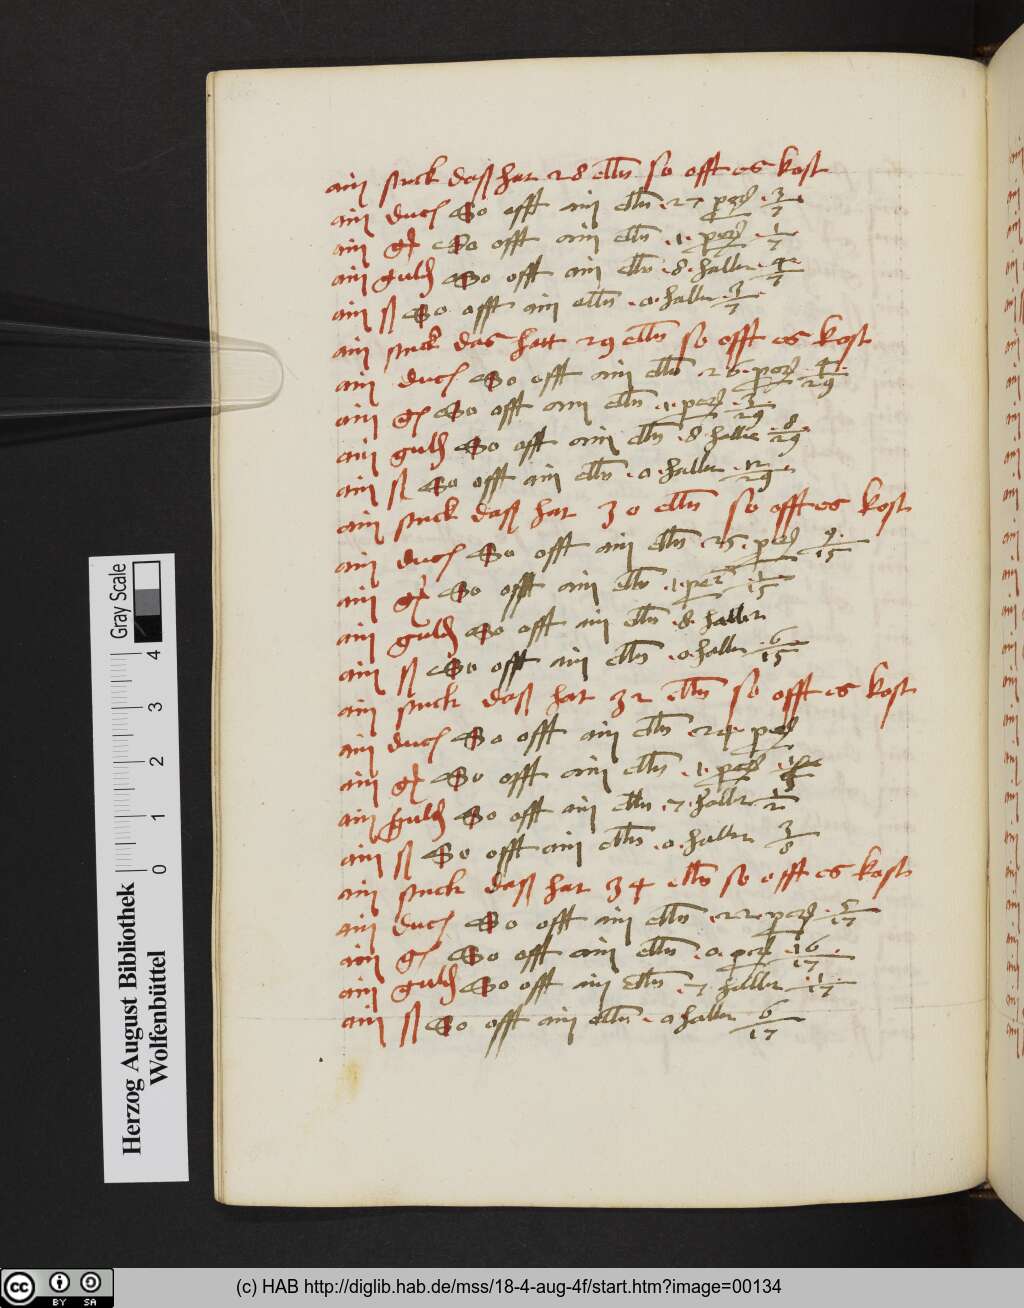 ain stuck daß hat 28 elln so offt es kost
ain duc So offt ain elln ·27 per 3/7
ain gr So offt ain elln ·1· per 1/7
ain guld So offt ain elln ·8· haller 4/7
ain ß So offt ain elln ·0· haller 3/7
ain stuck das hatt 29 elln so offt es kost
ain duc So offt ain elln 26· per 4/29
ain gr So offt ain elln ·1· per 3/29
ain guld So offt ain elln ·8 haller 8/29
ain ß So offt ain elln ·0· haller 12/29
ain stuck daß hat 30 elln so offt es kost
ain duc So offt ain elln 25· per 9/15
ain gr So offt ain elln ·1· per 1/15
ain guld So offt ain elln ·8· haller
ain ß So offt ain elln ·0· haller 6/15
ain stuck daß hat 32 elln so offt es kost
ain duc So offt ain elln ·24· per
ain gr So offt ain elln ·1· per
ain guld So offt ain elln ·7· haller 1/2
ain ß So offt ain elln ·0· haller 3/8
ain stuck daß hat 34 elln so offt es kost
ain duc So offt ain elln ·22· per /17
ain gr So offt ain elln ·0· per 16/17
ain guld So offt ain elln ·7 haller 1/17
ain ß So offt ain elln ·0 haller 6/17
Gray Scale
0 1 2 3 4
Herzog August Bibliothek
Wolfenbüttel
cc BY SA
(c) HAB http://diglib.hab.de/mss/18-4-aug-4f/start.htm?image=00134